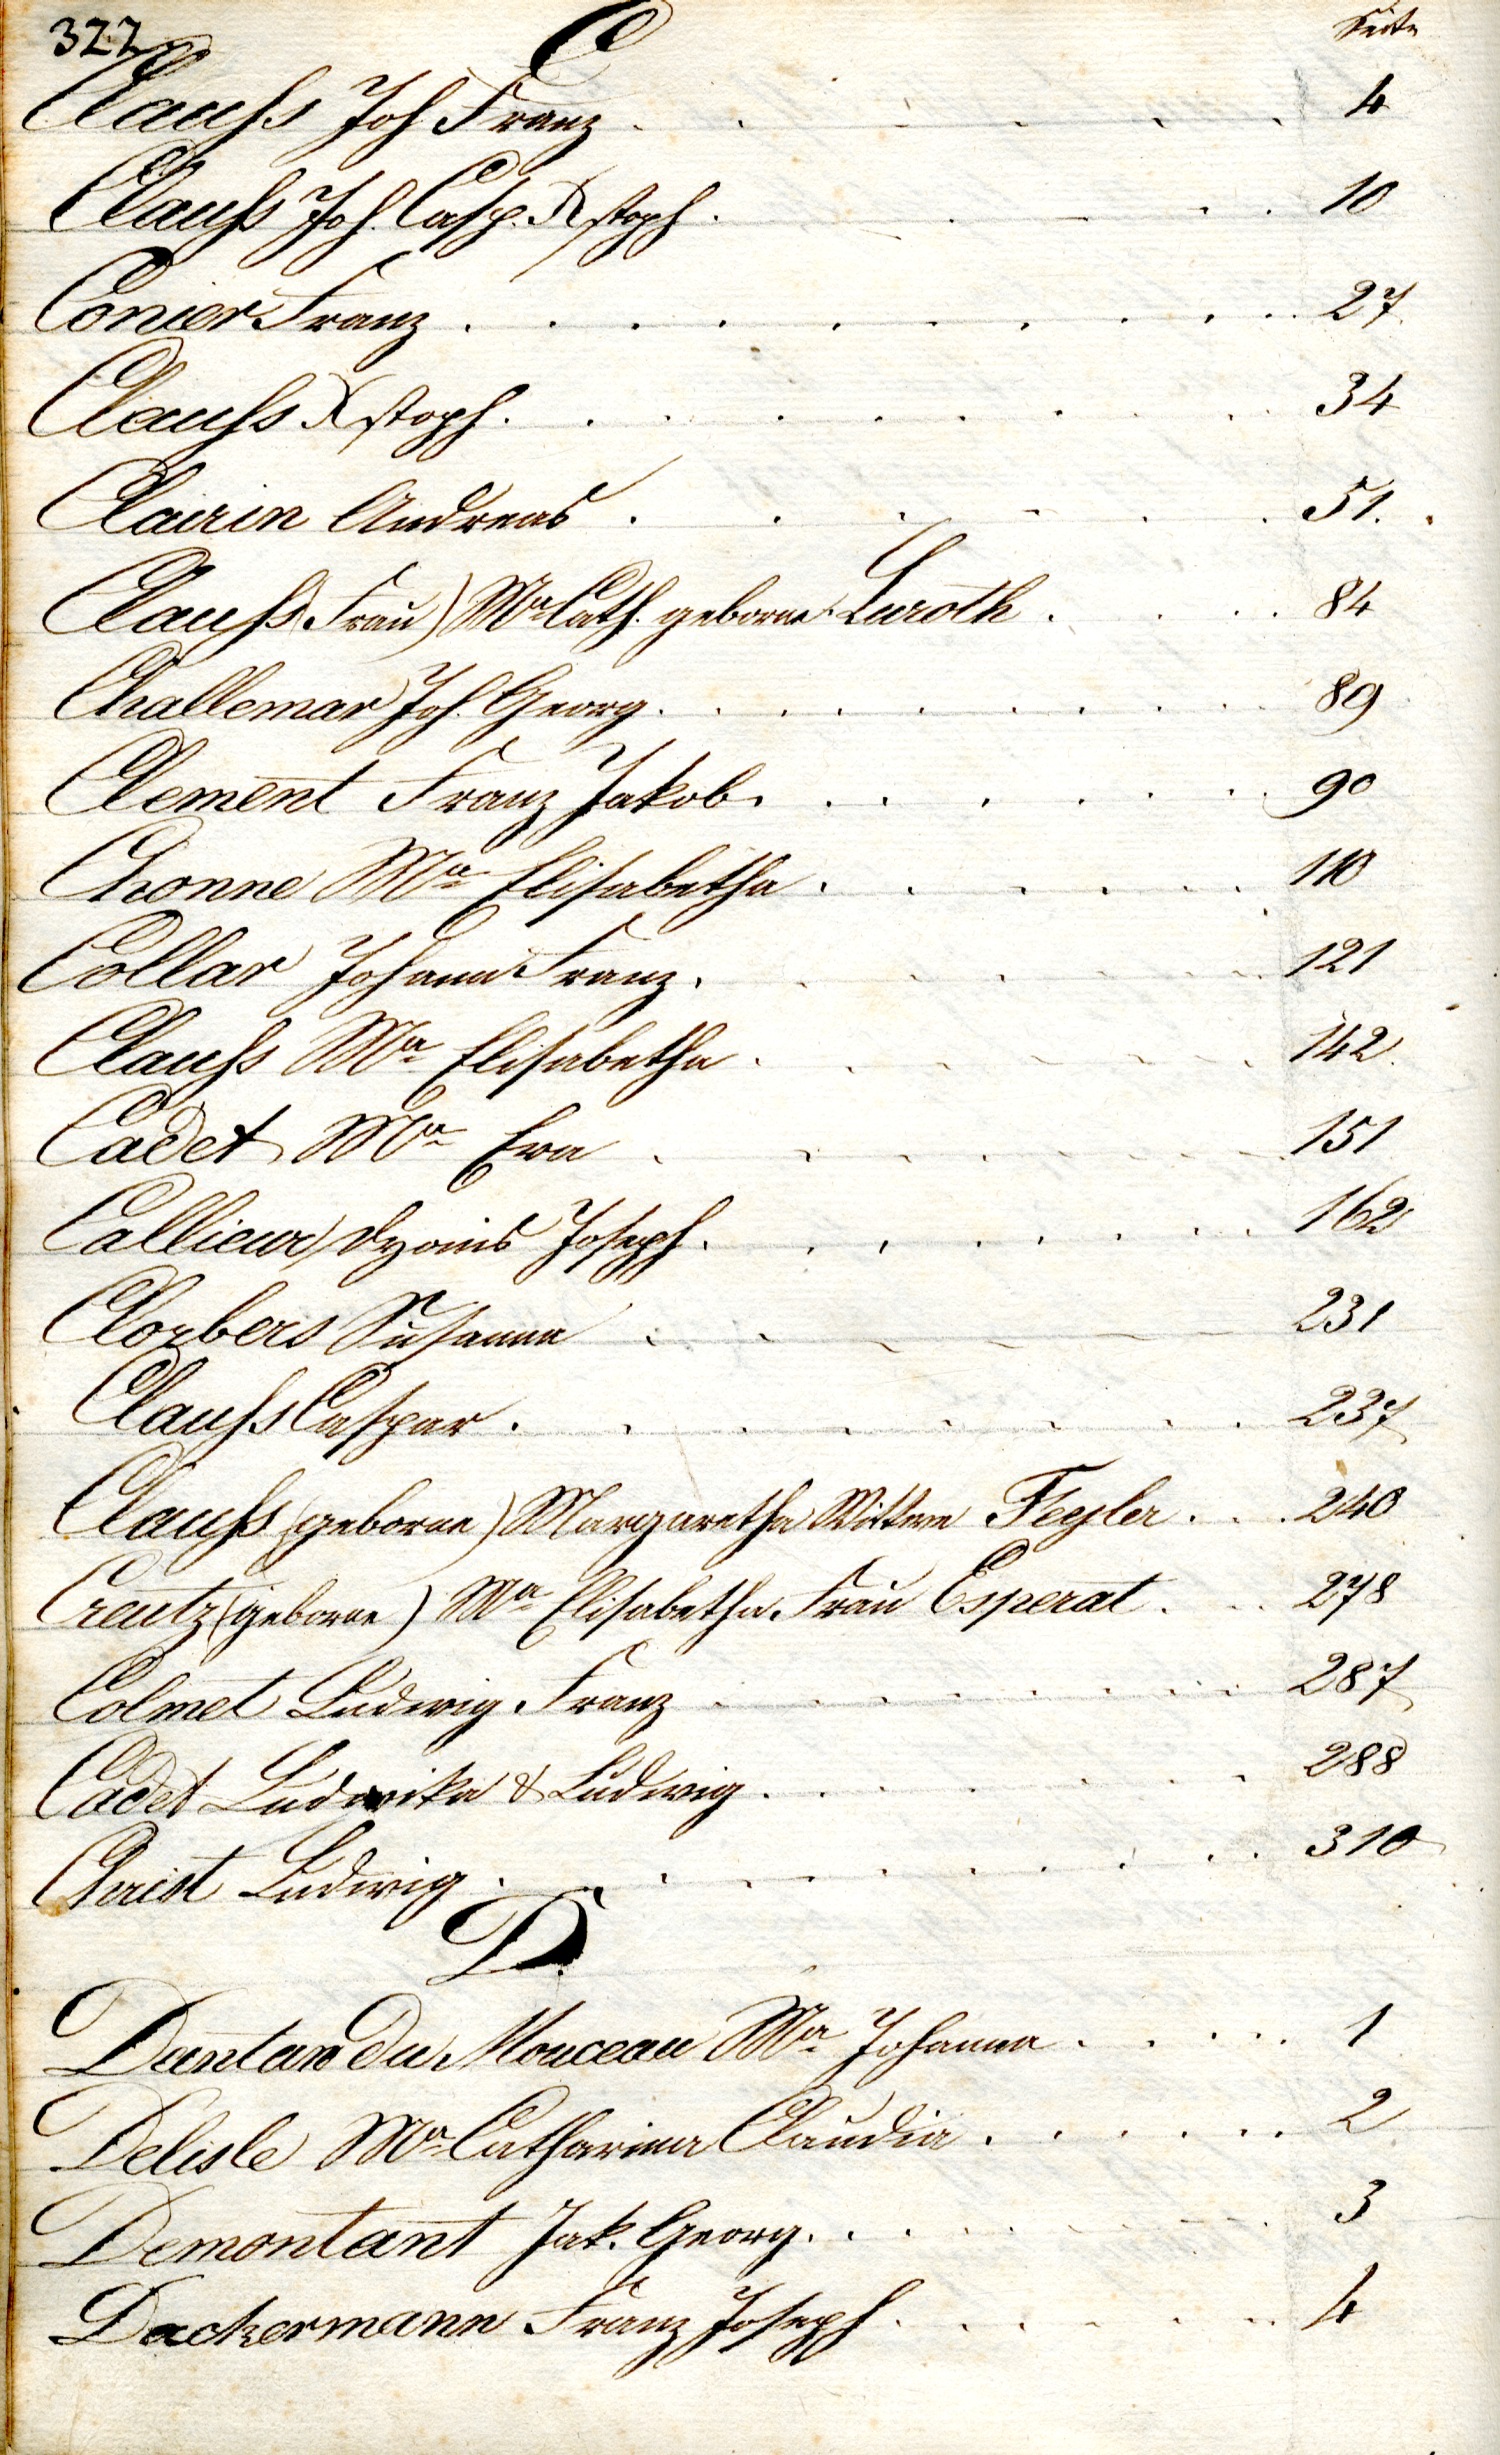 322
C
Seite
Clauß Joh Franz 4
Clauß Joh. Casp. Xstoph. 10
Conier Franz 27
Clauß Xstoph. 34
Clairin Andreas 51.
Clauß (Frau) Ma Cath. geborne Luroth 84
Challemar Joh. Georg. 89
Clement Franz Jakob. 90
Chonne Ma Elisabetha 110
Collar Johann Franz. 121
Clauß Ma Elisabetha 142
Cadet Ma Eva 151
Callieur Dyonis Joseph. 162
Clorbers Susanna 231
Clauß Caspar. 237
Clauß (geborne) Margaretha Wittwe Feyler 240
Creutz (geborne) Ma Elisabetha Frau Esperat. 278
Colmet Ludwig Franz 287
Cadet Ludwika & Ludwig. 288
Christ Ludwig. 310
D.
Dantan du Monceau Ma Johanna 1
Delisle Ma Catharina Claudia 2
Demontant Jak. Georg. 3
Dackermann Franz Joseph 4